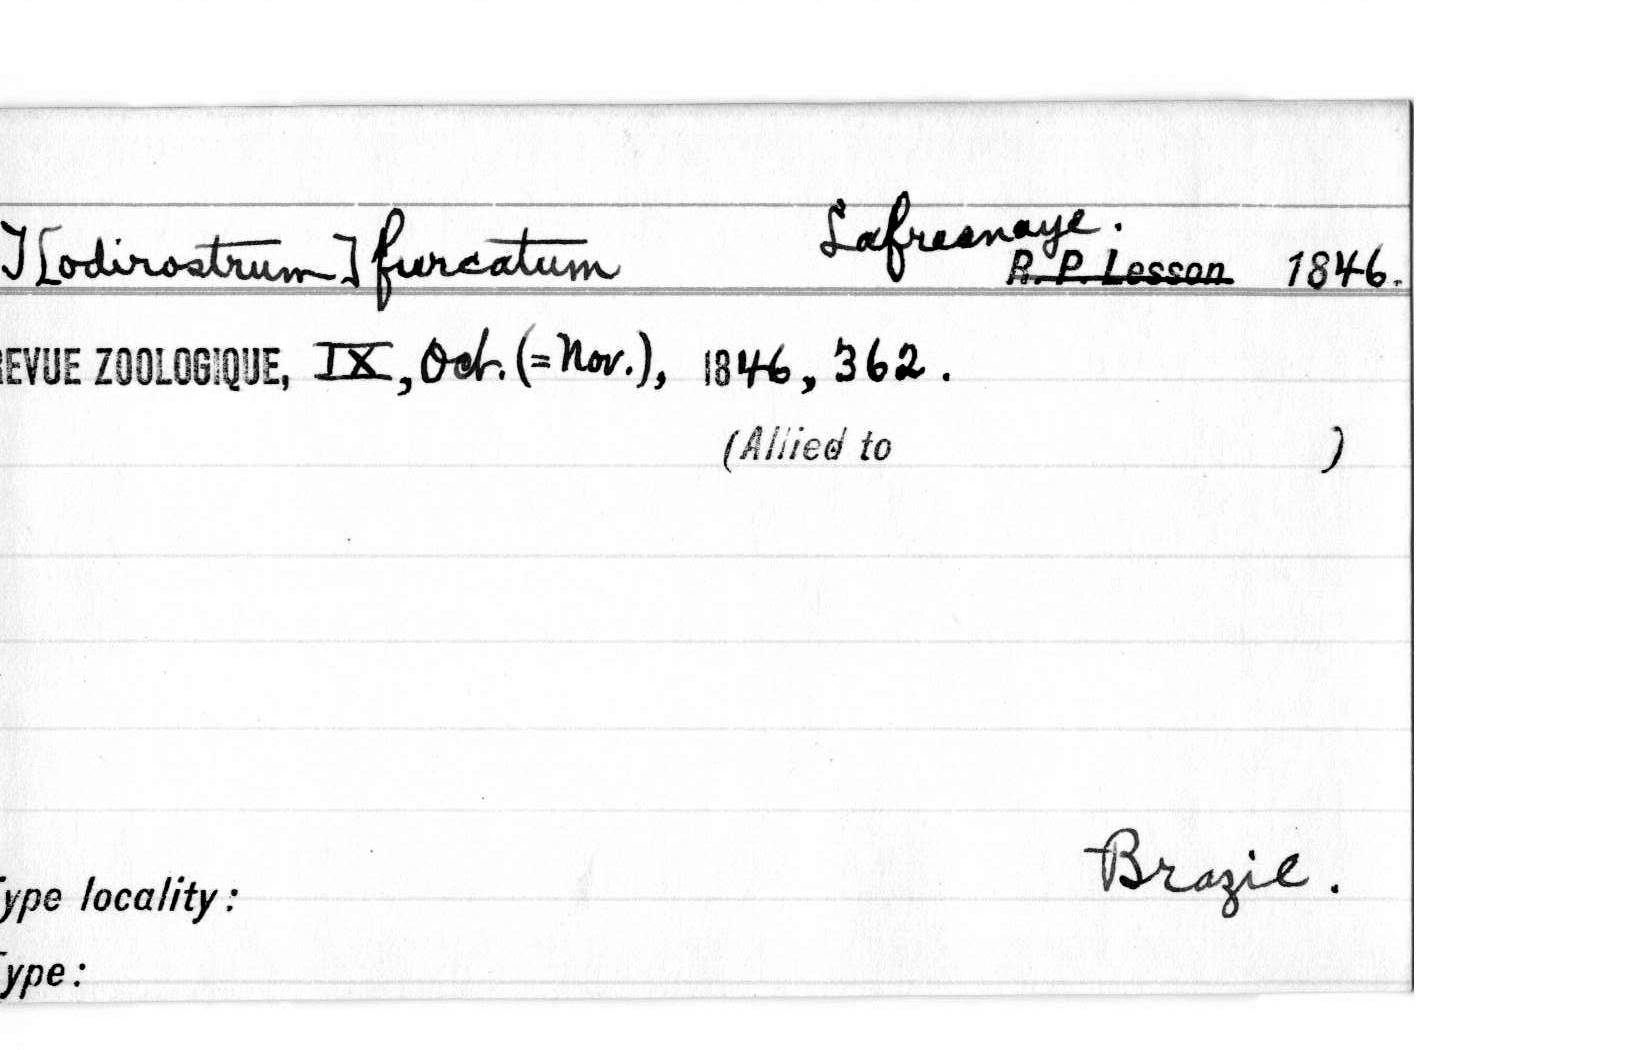 T[odirostrum] furcatum Lafresnaye.
R. P. Lesson 1846.
REVUE ZOOLOGIQUE, IX, Oct. (=Nov.), 1846, 362.
(Allied to )
Brazil.
Type locality:
Type: